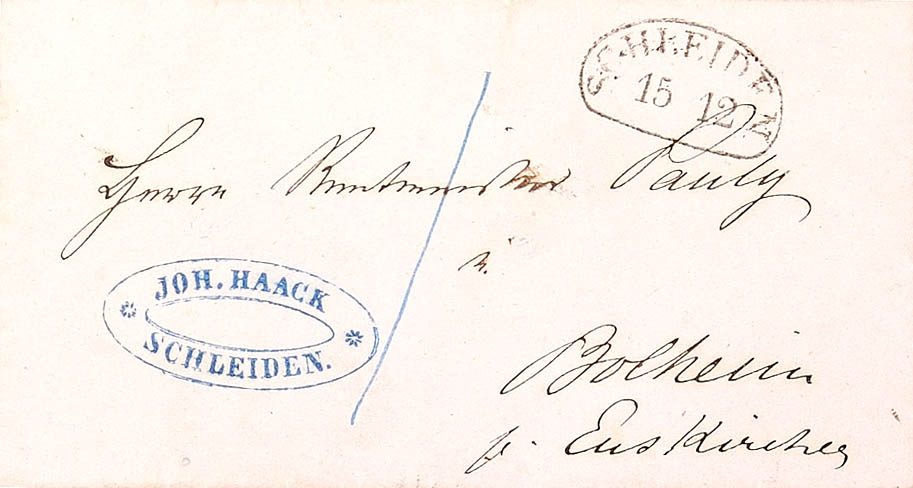 SCHLEIDEN
15 12
Herrn Rentmeister Pauly
JOH. HAACK
SCHLEIDEN.
Bolheim
p. Euskirchen